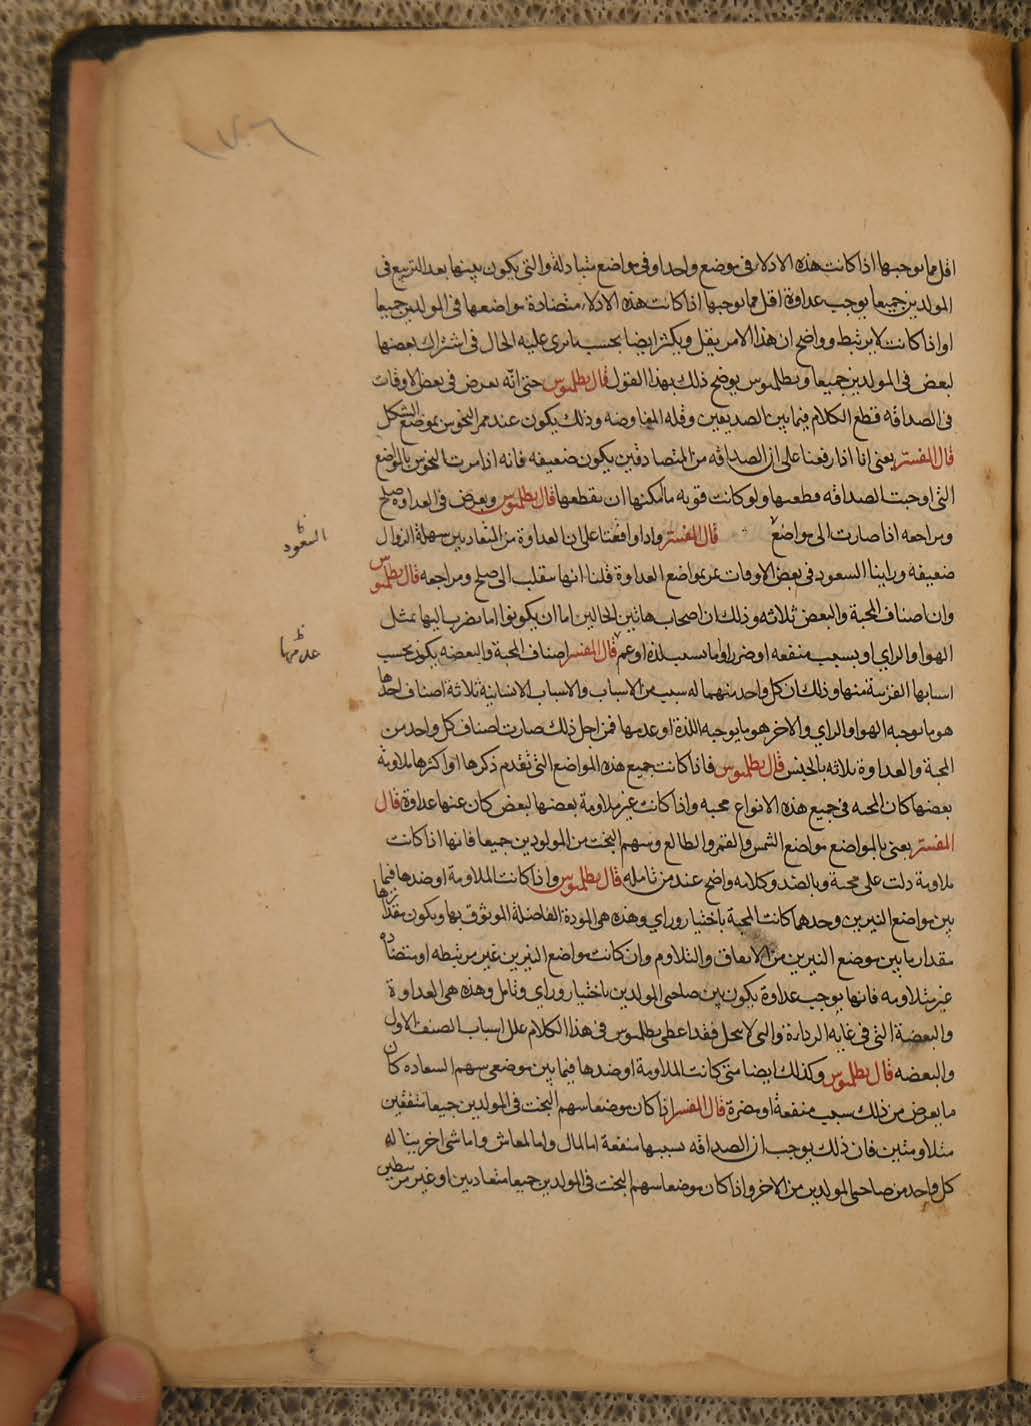 ١٧٠٦
اقل مما توجبها اذا كانت هذه الادلاء فى موضع واحد او فى مواضع متبادلة والتى يكون بينها بعد التربيع فى
المولدين جميعا يوجب عداوة اقل مما توجبها اذا كانت هذه الادلاء متضادة مواضعها فى المولدين جميعا
او اذا كانت لا يرتبط وواضح ان هذا الامر يقل ويكثر ايضا بحسب ما ترى عليه الحال فى اشتراك بعضها
لبعض فى المولدين جميعا وبطلميوس يوضح ذلك بهذا القول قال بطلميوس حتى انه يعرض فى بعض الاوقات
فى الصداقه قطع الكلام فيما بين الصديقين وقله المفاوضه وذلك يكون عند ممر النحوس بموضع الشكل
قال المفسر يعنى انا اذا وقفنا على ان الصداقه من المتصادقين يكون ضعيفه فانه اذا مرت النحوس بالمواضع
التى اوجبت الصداقه قطعتها ولو كانت قويه ما امكنها ان يقطعها قال بطلميوس ويعرض فى العداوة صلح
ومراجعه اذا صارت الى مواضع قال المفسر واذا واقفتنا على ان العداوة من المتعاديين سهلة الزوال
السعود
ضعيفة وراينا السعود فى بعض الاوقات تمر بمواضع العداوة قلنا انها ستقلب الى صلح ومراجعه قال بطلميوس
وان اصناف المحبة والبغض ثلاثه وذلك ان اصحاب هاتين الحالين اما ان يكونوا انما يضرب اليها بمثل
الهوا والراي او بسبب منفعه او ضرر او ما بسبب لذة او غم قال المفسر اصناف المحبة والبغضه يكون بحسب
عدمها
اسبابها القريبة منها وذلك ان كل واحد منهما له سبب من الاسباب والاسباب الانسانية ثلاثة اصناف احدها
هو ما توجبه الهوا والراي والاخر هو ما يوجبه اللذة او عدمها فمن اجل ذلك صارت اصناف كل واحد من
المحبة والعداوة ثلاثه بالجنس قال بطلميوس فاذا كانت جميع هذه المواضع التى تقدم ذكرها او اكثرها ملاومة
بعضها كان المحبه فى جميع هذه الانواع محبه واذا كانت غير ملاومة بعضها لبعض كان عنها عداوة قال
المفسر يعنى بالمواضع مواضع الشمس والقمر والطالع وسهم البخت من المولودين جميعا فانها اذا كانت
ملاومة دلت على محبة وبالضد وكلامه واضح عند من تامله قال بطلميوس واذا كانت الملاومة او ضدها فيما
بين مواضع النيرين وحدهما كانت المحبة باختيار وراي وهذه هى المودة الفاضلة الموثوق بها ويكون مقدارها
مقدار ما بين موضع النيرين من الاتفاق والتلاوم وان كانت مواضع النيرين غير مرتبطه او متضاده
غير متلاومه فانها يوجب عداوة يكون بين صاحبى المولدين باختيار وراي وتامل وهذه هى العداوة
والبغضة التى فى غاية الرداءة والتى لا تنحل فقد اعطى بطلميوس فى هذا الكلام علل اسباب الصنف الاول
والبغضه قال بطلميوس وكذلك ايضا متى كانت الملاومة او ضدها فيما بين موضعى سهم السعاده كان
ما يعرض من ذلك بسبب منفعة او مضرة قال المفسر اذا كان موضعا سهم البخت فى المولدين جميعا متفقين
متلاومين فان ذلك يوجب ان الصداقه سببها منفعة اما لمال واما لمعاش واما شى اخر يناله
كل واحد من صاحبى المولدين من الاخر واذا كان موضعا سهم البخت فى المولدين جميعا متعاديين او غير مرتبطين